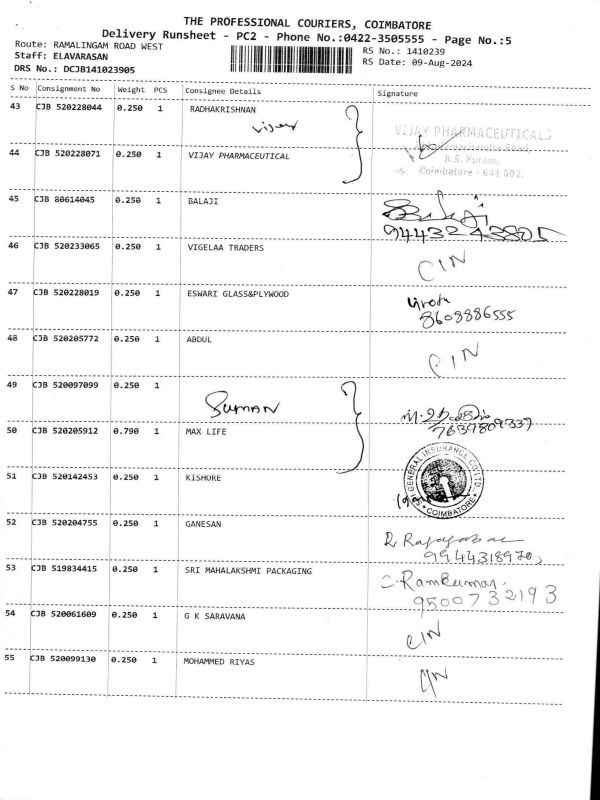 THE PROFESSIONAL COURIERS, COIMBATORE
Delivery Runsheet - PC2 - Phone No.:0422-3505555 - Page No.:5
Route: RAMALINGAM ROAD WEST
RS No.: 1410239
Staff: ELAVARASAN
RS Date: 09-Aug-2024
DRS No.: DCJB141023905
S No Consignment No Weight PCS Consignee Details Signature
43 CJB 520228044 0.250 1 RADHAKRISHNAN
vijay
VIJAY PHARMACEUTICALS
R.S. Puram,
Coimbatore - 641 002.
44 CJB 520228071 0.250 1 VIJAY PHARMACEUTICAL
45 CJB 80614045 0.250 1 BALAJI
Balaji
46 CJB 520233065 0.250 1 VIGELAA TRADERS
CIN
47 CJB 520228019 0.250 1 ESWARI GLASS&PLYWOOD
8608886555
48 CJB 520205772 0.250 1 ABDUL
CIN
49 CJB 520097099 0.250 1
SUMAN
7639809337
50 CJB 520205912 0.790 1 MAX LIFE
GENERAL INSURANCE CO LTD.
COIMBATORE
51 CJB 520142453 0.250 1 KISHORE
52 CJB 520204755 0.250 1 GANESAN
9944318970
53 CJB 519834415 0.250 1 SRI MAHALAKSHMI PACKAGING
C. Ramkumar.
9500732193
54 CJB 520061609 0.250 1 G K SARAVANA
CIN
55 CJB 520099130 0.250 1 MOHAMMED RIYAS
CIN